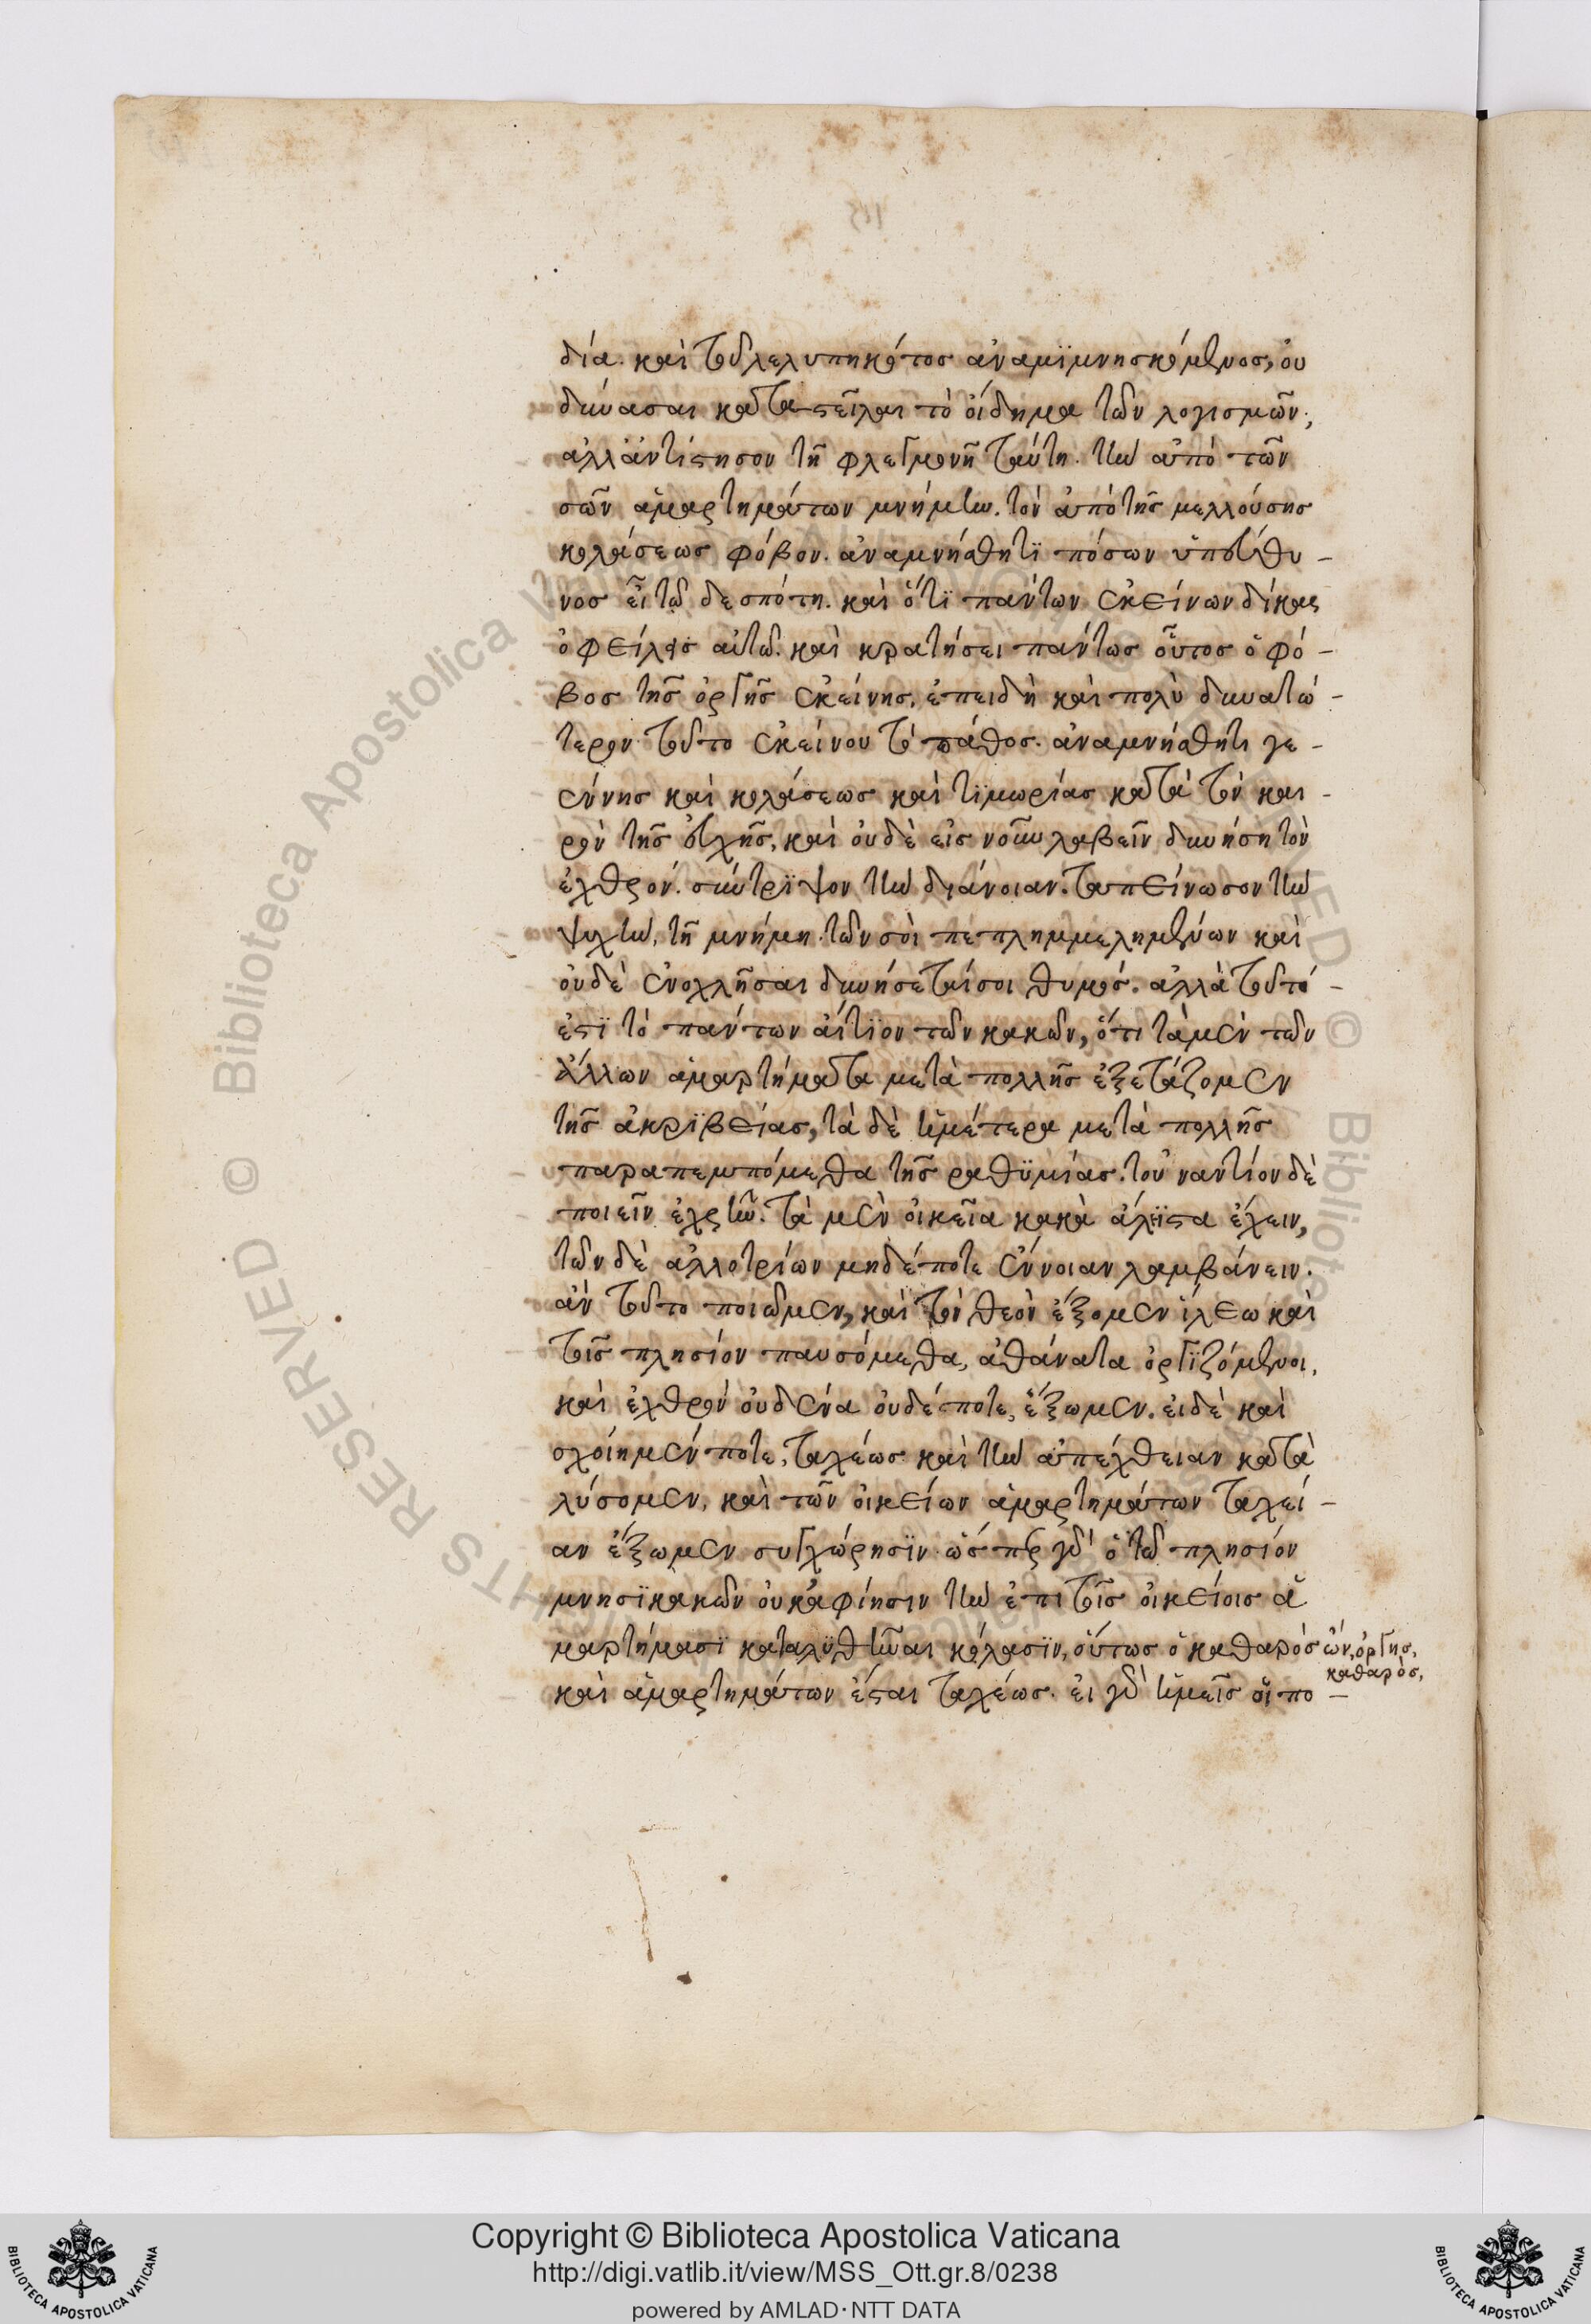 δία. καὶ τοῦ λελυπηκότος ἀναμϊμνησκόμενος, οὐ
δύνασαι καταστεῖλαι τὸ οἴδημα τῶν λογισμῶν;
ἀλλ' ἀντίστησον τῆ φλεγμονῆ ταύτη. τὴν ἀπὸ τῶν
σῶν ἁμαρτημάτων μνήμην. τὸν ἀπὸ τῆς μελλούσης
κολάσεως φόβον. ἀναμνήσθητϊ πόσων ὑπεύθυ-
νος εἶ τῶ δεσπότη. καὶ ὅτϊ πάντων ἐκείνων δίκας
ὀφείλεις αὐτῶ. καὶ κρατήσει πάντως οὗτος ὁ φό-
βος τῆς ὀργῆς ἐκείνης, ἐπειδὴ καὶ πολὺ δυνατώ-
τερον τοῦτο ἐκείνου τὸ πάθος. ἀναμνήσθητι γε-
έννης καὶ κολάσεως καὶ τϊμωρίας κατὰ τὸν και-
ρὸν τῆς εὐχῆς, καὶ οὐδὲ εἰς νοῦν λαβεῖν δυνήση τὸν
ἐχθρόν. σύντρϊψον τὴν διάνοιαν. ταπείνωσον τὴν
ψυχὴν, τῆ μνήμη τῶν σοὶ πεπλημμελημένων καὶ
οὐδὲ ἐνοχλῆσαι δυνήσεταί σοι θυμός. ἀλλὰ τοῦτό
ἐστϊ τὸ πάντων αἴτϊον τῶν κακῶν, ὅτι τὰ μὲν τῶν
ἄλλων ἁμαρτήματα μετὰ πολλῆς ἐξετάζομεν
τῆς ἀκρϊβείας, τὰ δὲ ἡμέτερα μετὰ πολλῆς
παραπεμπόμεθα τῆς ραθϋμίας. τοὐναντίον δὲ
ποιεῖν ἐχρῆν. τὰ μὲν οἰκεῖα κακὰ ἄληστα ἔχειν,
τῶν δὲ ἀλλοτρίων μηδέποτε ἔννοιαν λαμβάνειν.
ἀν τοῦτο ποιῶμεν, καὶ τὸν θεὸν ἕξομεν ἵλεω καὶ
τοῖς πλησίον παυσόμεθα, ἀθάνατα ὀργϊζόμενοι,
καὶ ἐχθρὸν οὐδένα οὐδέποτε, ἕξωμεν. εἰ δὲ καὶ
σχοίημέν ποτε, ταχέως καὶ τὴν ἀπέχθειαν κατα
λύσομεν, καὶ τῶν οἰκείων ἁμαρτημάτων ταχεί-
αν ἕξωμεν συγχώρησϊν. ὥσπερ γὰρ ὁ τῶ πλησίον
μνησϊκακῶν οὐκ ἀφίησιν τὴν ἐπι τοῖς οἰκείοις ἁ
μαρτήμασϊ καταλϋθῆναι κόλασϊν, οὕτως ὁ καθαρὸς ὢν, ὀργῆς,
καθαρὸς,
καὶ ἁμαρτημάτων ἔσται ταχέως. εἰ γὰρ ἡμεῖς οἱ πο-
Copyright © Biblioteca Apostolica Vaticana
http://digi.vatlib.it/view/MSS_Ott.gr.8/0238
powered by AMLAD·NTT DATA
BIBLIOTECA APOSTOLICA VATICANA
BIBLIOTECA APOSTOLICA VATICANA